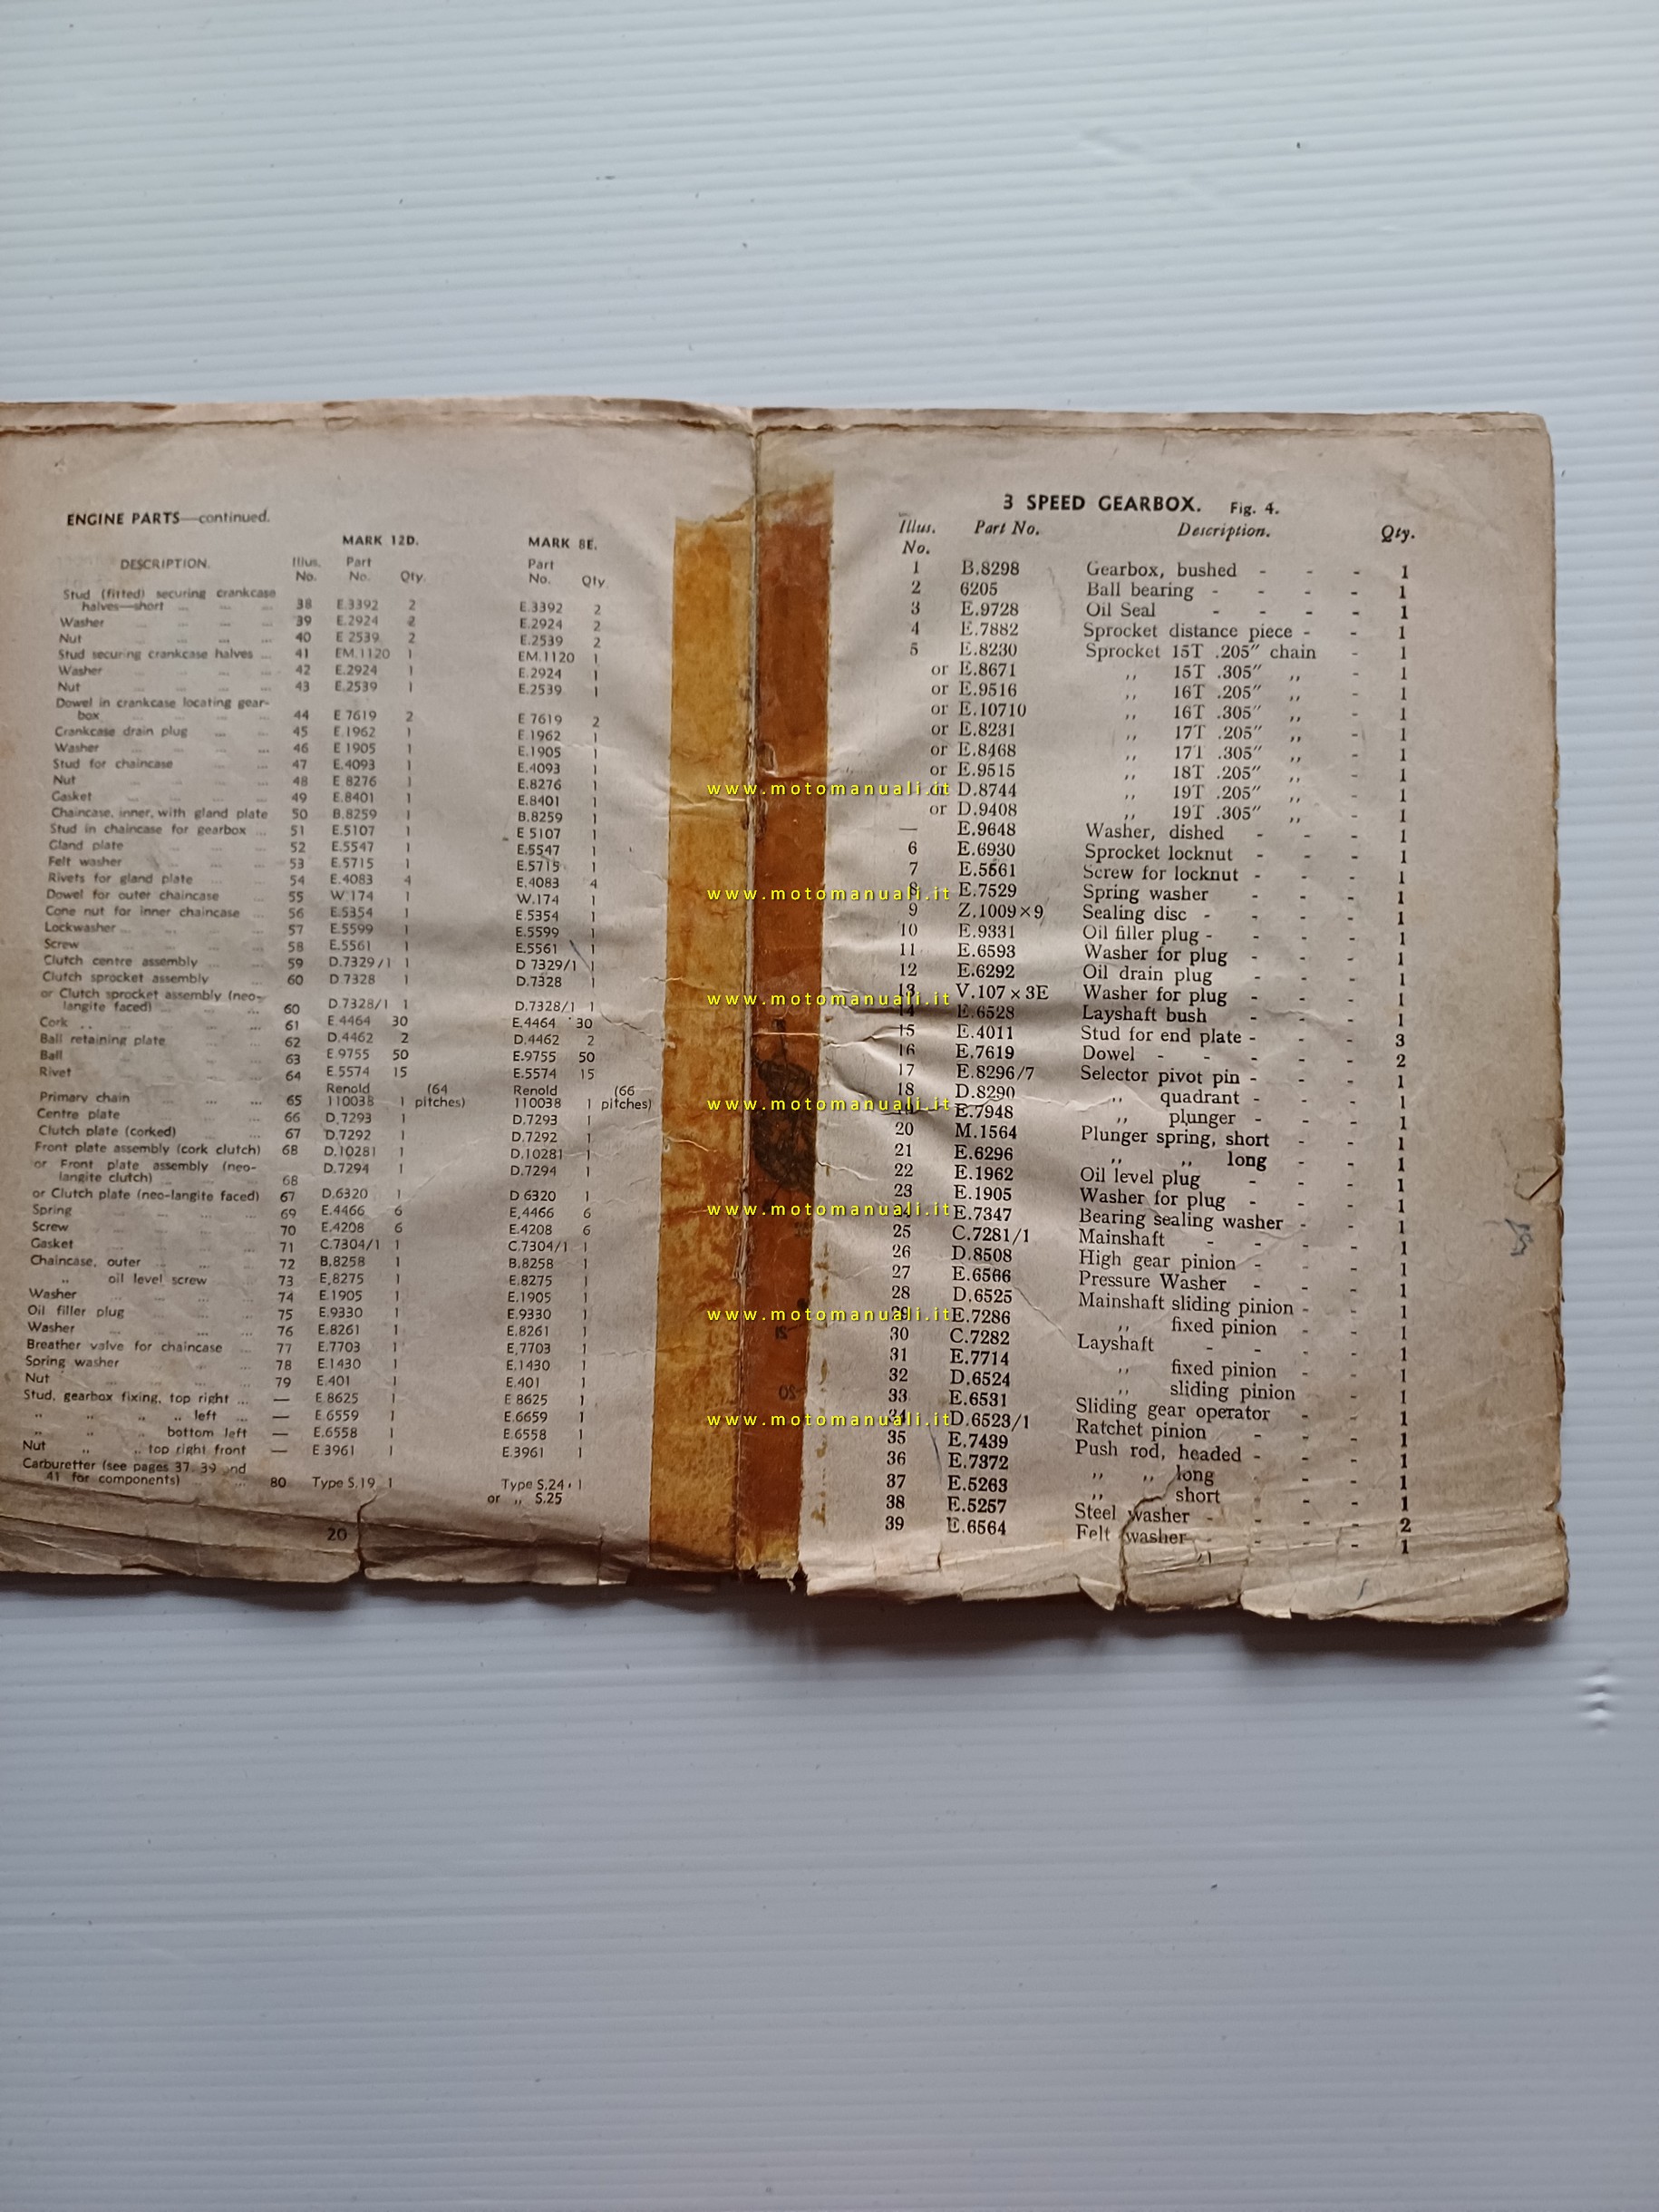 ENGINE PARTS—continued.
MARK 12D. MARK 8E.
DESCRIPTION. Illus. No. Part No. Qty. Part No. Qty
Stud (fitted) securing crankcase
halves—short ... ... ... 38 E.3392 2 E.3392 2
Washer ... ... ... 39 E.2924 2 E.2924 2
Nut ... ... ... 40 E 2539 2 E.2539 2
Stud securing crankcase halves ... 41 EM.1120 1 EM.1120 1
Washer ... ... ... 42 E.2924 1 E.2924 1
Nut ... ... ... 43 E.2539 1 E.2539 1
Dowel in crankcase locating gear-
box ... ... ... 44 E 7619 2 E 7619 2
Crankcase drain plug ... ... 45 E.1962 1 E.1962 1
Washer ... ... ... 46 E 1905 1 E.1905 1
Stud for chaincase ... ... 47 E.4093 1 E.4093 1
Nut ... ... ... 48 E 8276 1 E.8276 1
Gasket ... ... ... 49 E.8401 1 E.8401 1
Chaincase, inner, with gland plate 50 B.8259 1 B.8259 1
Stud in chaincase for gearbox ... 51 E.5107 1 E 5107 1
Gland plate ... ... 52 E.5547 1 E.5547 1
Felt washer ... ... 53 E.5715 1 E.5715 1
Rivets for gland plate ... ... 54 E.4083 4 E.4083 4
Dowel for outer chaincase ... 55 W.174 1 W.174 1
Cone nut for inner chaincase ... 56 E.5354 1 E.5354 1
Lockwasher ... ... ... 57 E.5599 1 E.5599 1
Screw ... ... ... 58 E.5561 1 E.5561 1
Clutch centre assembly ... ... 59 D.7329/1 1 D 7329/1 1
Clutch sprocket assembly ... 60 D 7328 1 D.7328 1
or Clutch sprocket assembly (neo-
langite faced) ... ... 60 D.7328/1 1 D.7328/1 1
Cork ... ... ... 61 E.4464 30 E.4464 30
Ball retaining plate ... ... 62 D.4462 2 D.4462 2
Ball ... ... ... 63 E.9755 50 E.9755 50
Rivet ... ... ... 64 E.5574 15 E.5574 15
Renold (64 Renold (66
Primary chain ... ... ... 65 110038 1 pitches) 110038 1 pitches)
Centre plate ... ... ... 66 D.7293 1 D.7293 1
Clutch plate (corked) ... ... 67 D.7292 1 D.7292 1
Front plate assembly (cork clutch) 68 D.10281 1 D.10281 1
or Front plate assembly (neo- D.7294 1 D.7294 1
langite clutch) ... ... 68
or Clutch plate (neo-langite faced) 67 D.6320 1 D 6320 1
Spring ... ... ... 69 E.4466 6 E,4466 6
Screw ... ... ... 70 E.4208 6 E.4208 6
Gasket ... ... ... 71 C.7304/1 1 C.7304/1 1
Chaincase, outer ... ... 72 B.8258 1 B.8258 1
,, oil level screw 73 E,8275 1 E.8275 1
Washer ... ... ... 74 E.1905 1 E.1905 1
Oil filler plug ... ... 75 E.9330 1 E.9330 1
Washer ... ... ... 76 E.8261 1 E.8261 1
Breather valve for chaincase ... 77 E.7703 1 E,7703 1
Spring washer ... ... 78 E.1430 1 E,1430 1
Nut ... ... ... 79 E.401 1 E.401 1
Stud, gearbox fixing, top right ... — E.8625 1 E 8625 1
,, ,, ,, ,, left ... — E.6559 1 E.6659 1
,, ,, ,, bottom left — E.6558 1 E.6558 1
Nut ,, ,, top right front — E 3961 1 E.3961 1
Carburetter (see pages 37, 39 and
41 for components) ... ... 80 Type S.19 1 Type S.24 1
or ,, S.25
20
3 SPEED GEARBOX. Fig. 4.
Illus. No. Part No. Description. Qty.
1 B.8298 Gearbox, bushed - - - 1
2 6205 Ball bearing - - - - 1
3 E.9728 Oil Seal - - - - 1
4 E.7882 Sprocket distance piece - - 1
5 E.8230 Sprocket 15T .205″ chain - 1
or E.8671 ,, 15T .305″ ,, - 1
or E.9516 ,, 16T .205″ ,, - 1
or E.10710 ,, 16T .305″ ,, - 1
or E.8231 ,, 17T .205″ ,, - 1
or E.8468 ,, 17T .305″ ,, - 1
or E.9515 ,, 18T .205″ ,, - 1
or D.8744 ,, 19T .205″ ,, - 1
or D.9408 ,, 19T .305″ ,, - 1
— E.9648 Washer, dished - - - 1
6 E.6930 Sprocket locknut - - - 1
7 E.5561 Screw for locknut - - - 1
8 E.7529 Spring washer - - - 1
9 Z.1009×9 Sealing disc - - - - 1
10 E.9331 Oil filler plug - - - - 1
11 E.6593 Washer for plug - - - 1
12 E.6292 Oil drain plug - - - 1
13 V.107×3E Washer for plug - - - 1
14 E.6528 Layshaft bush - - - 1
15 E.4011 Stud for end plate - - - 3
16 E.7619 Dowel - - - - - 2
17 E.8296/7 Selector pivot pin - - - 1
18 D.8290 ,, quadrant - - - 1
19 E.7948 ,, plunger - - - 1
20 M.1564 Plunger spring, short - - 1
21 E.6296 ,, ,, long - - 1
22 E.1962 Oil level plug - - - 1
23 E.1905 Washer for plug - - - 1
24 E.7347 Bearing sealing washer - - 1
25 C.7281/1 Mainshaft - - - - 1
26 D.8508 High gear pinion - - - 1
27 E.6566 Pressure Washer - - - 1
28 D.6525 Mainshaft sliding pinion - - 1
29 E.7286 ,, fixed pinion - - 1
30 C.7282 Layshaft - - - - 1
31 E.7714 ,, fixed pinion - - 1
32 D.6524 ,, sliding pinion - 1
33 E.6531 Sliding gear operator - - 1
34 D.6523/1 Ratchet pinion - - - 1
35 E.7439 Push rod, headed - - - 1
36 E.7372 ,, ,, long - - - 1
37 E.5263 ,, short - - 1
38 E.5257 Steel washer - - - - 2
39 E.6564 Felt washer - - - - 1
www.motomanuali.it
www.motomanuali.it
www.motomanuali.it
www.motomanuali.it
www.motomanuali.it
www.motomanuali.it
www.motomanuali.it